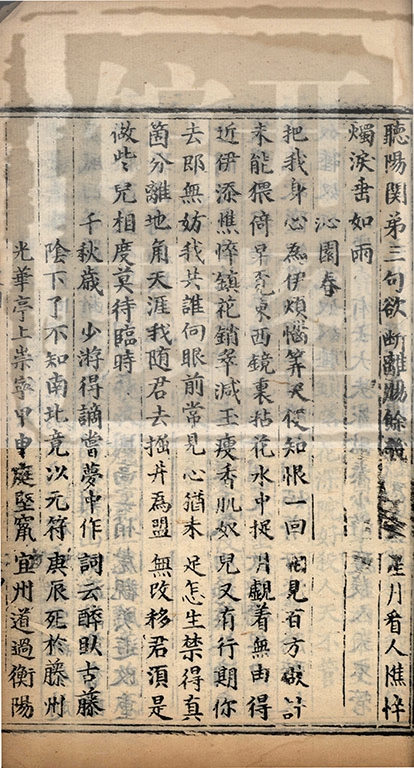 聽陽関弟三句欲斷離腸餘 星月看人憔悴
燭淚垂如雨
沁園春
把我身心為伊煩惱算天便知恨一回相見百方做計
未能猥倚早覓東西鏡裏拈花水中捉月覷着無由得
近伊添憔悴鎮花銷翠減玉瘦香肌奴兒又有行期你
去即無妨我共誰向眼前常見心猶未足怎生禁得真
箇分離地角天涯我随君去掘井為盟無改移君須是
做些兒相度莫待臨時
千秋歳 少游得謫嘗夢中作詞云醉臥古藤
陰下了不知南北竟以元符庚辰死於藤州
光華亭上崇寧甲申庭堅竄宜州道過衡陽